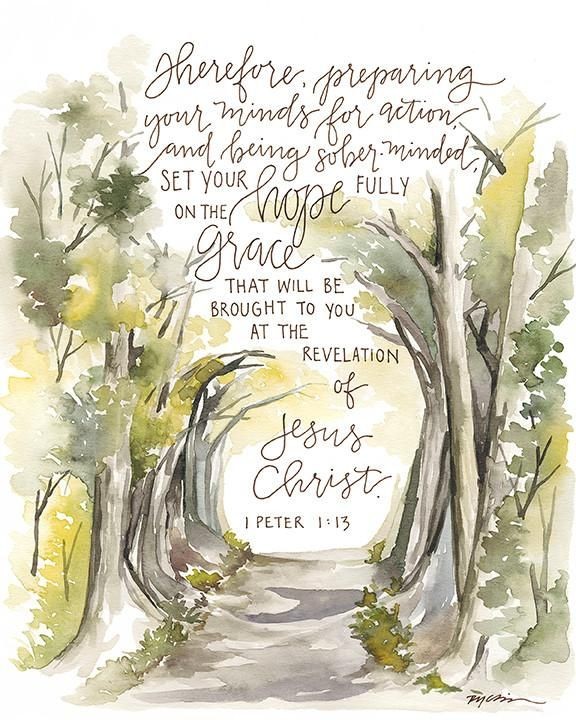 Therefore, preparing
your minds for action,
and being sober-minded,
SET YOUR hope FULLY
ON THE
grace
THAT WILL BE
BROUGHT TO YOU
AT THE
REVELATION
of
Jesus
Christ.
1 PETER 1:13